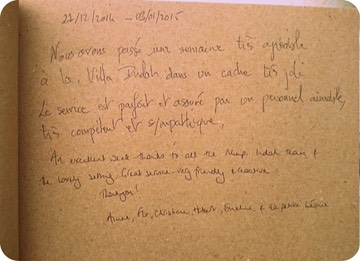 27/12/2014 - 03/01/2015
Nous avons passé une semaine très agréable
à la Villa Indah dans un cadre très joli
Le service est parfait et assuré par un personnel aimable,
très compétent et sympathique.
An excellent week thanks to all the Indah team &
the lovely setting. Great service - very friendly &
Thankyou!
Anne, Flo, Christiane, Hubert, Emeline, & la petite